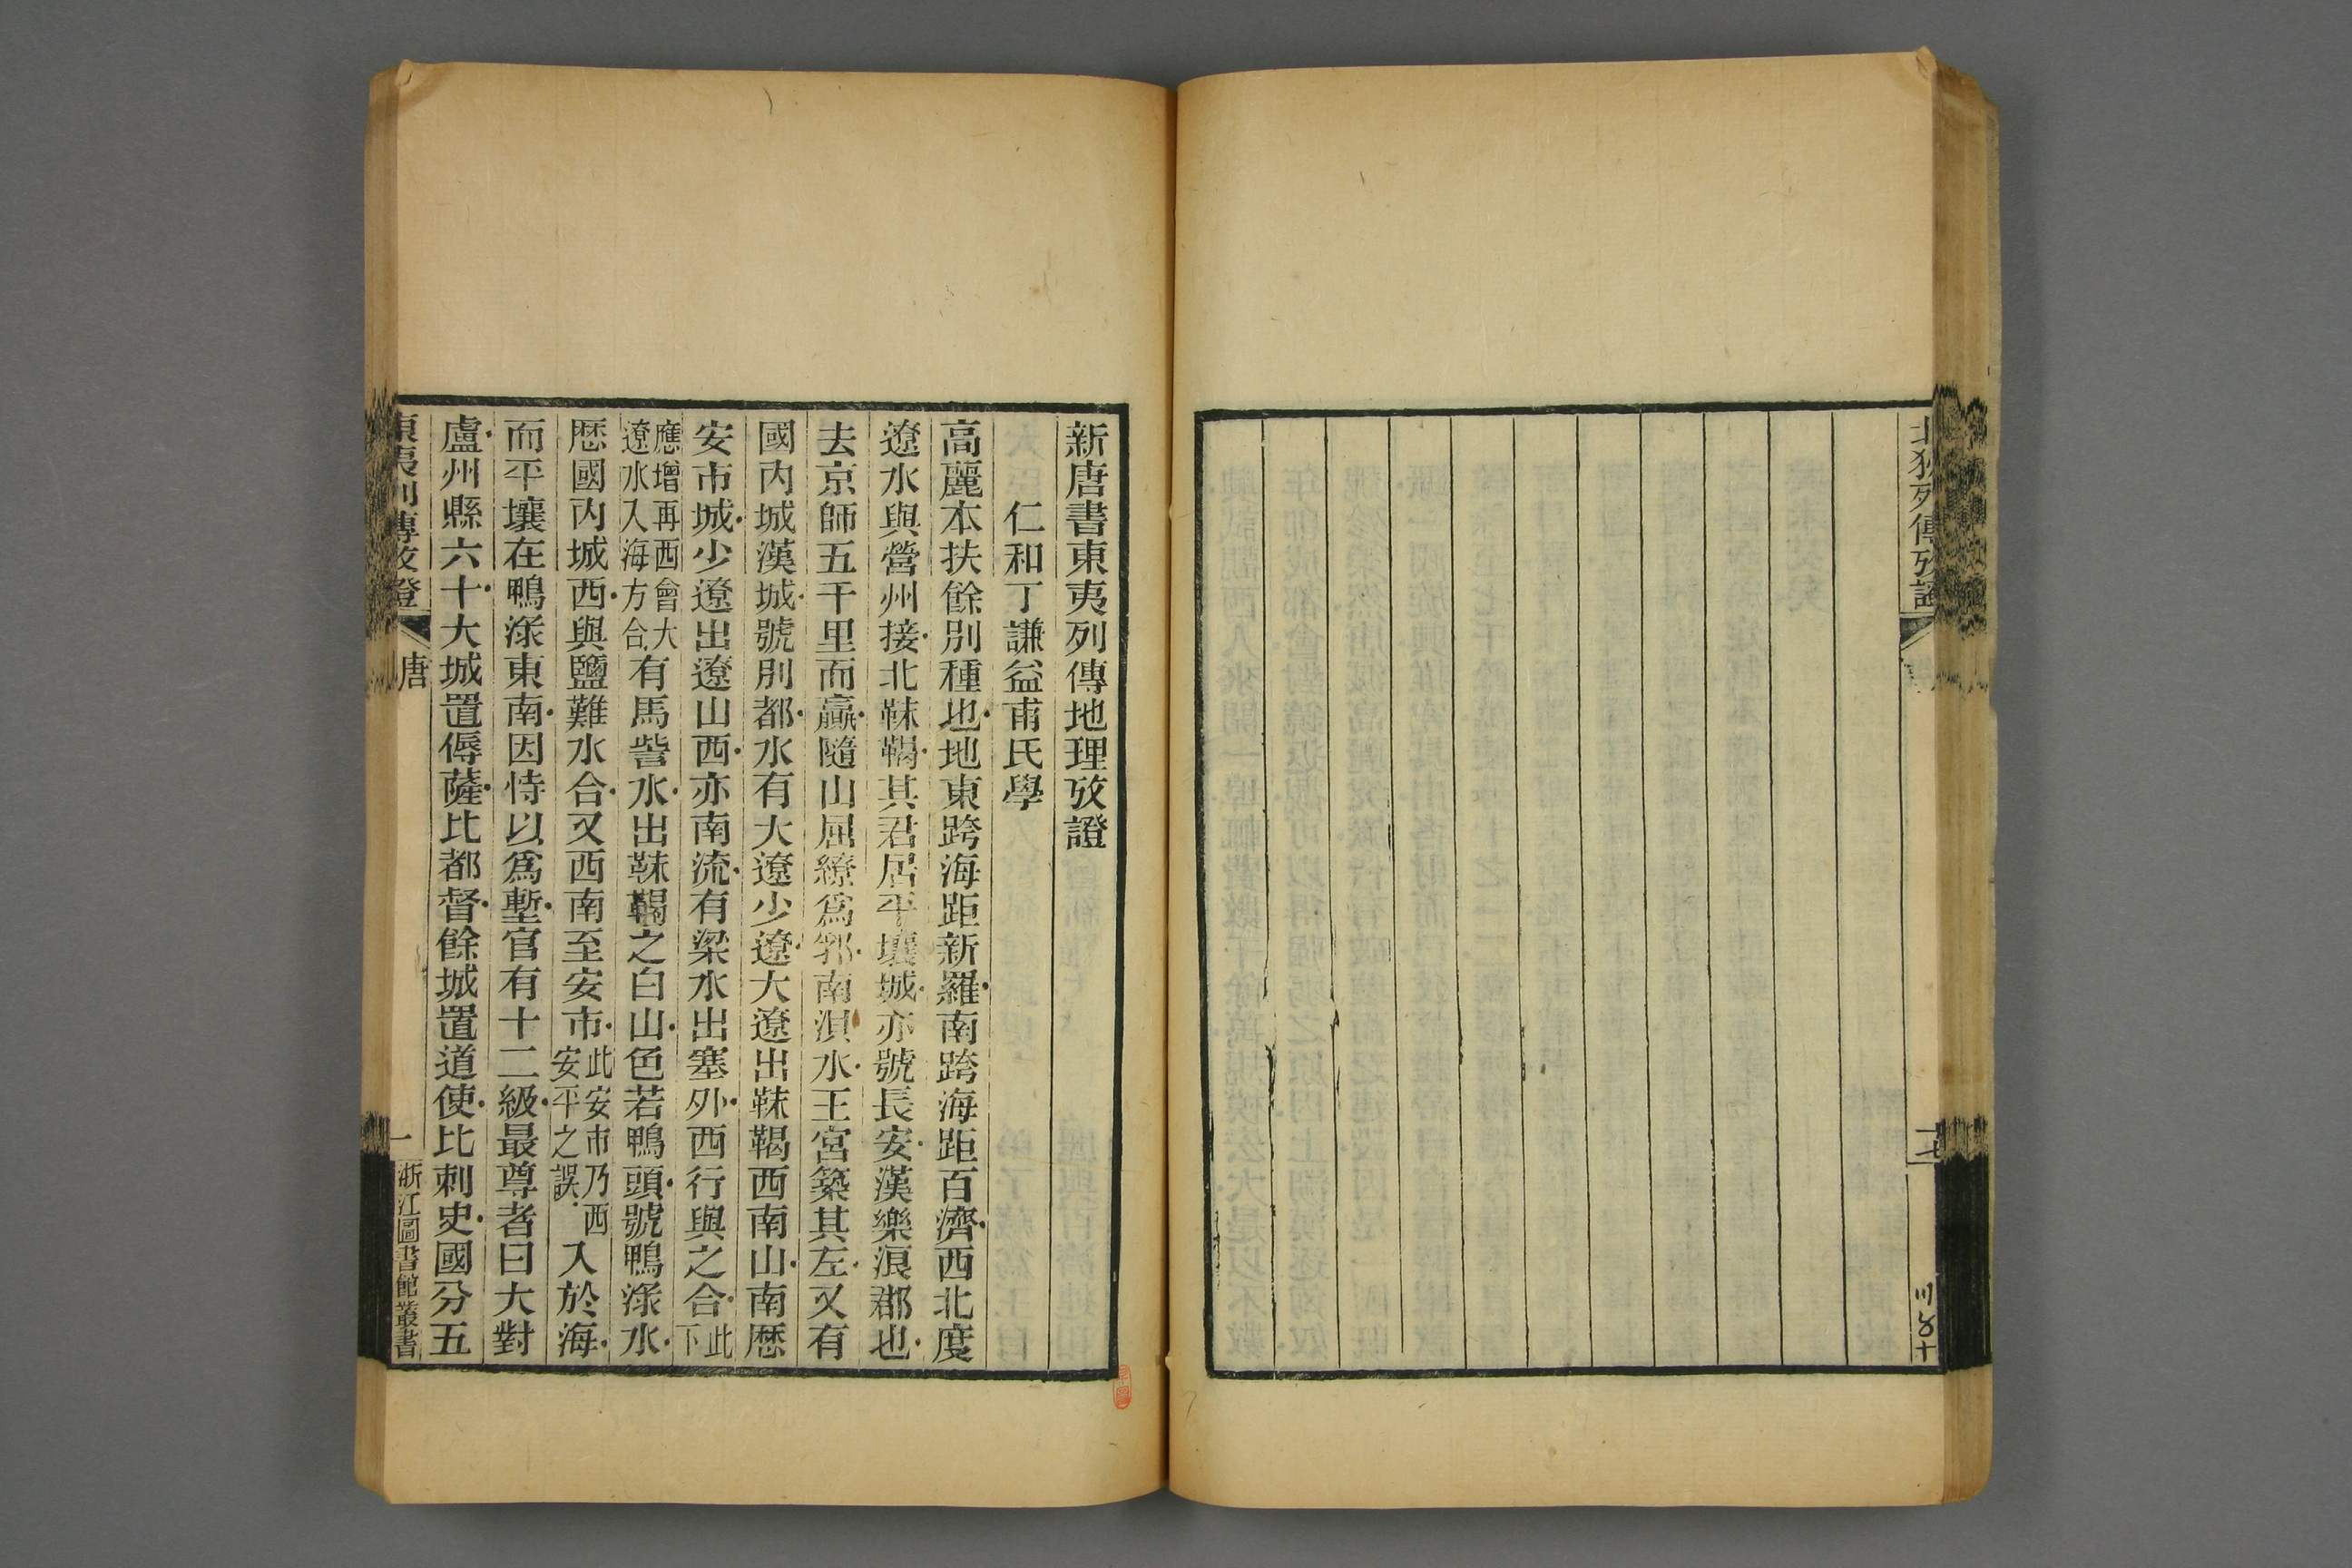 北狄列傳攷證
十七
新唐書東夷列傳地理攷證
仁和丁謙益甫氏學
高麗本扶餘別種也地東跨海距新羅南跨海距百濟西北度
遼水與營州接北靺鞨其君居平壤城亦號長安漢樂浪郡也
去京師五千里而贏隨山屈繚爲郛南浿水王宮築其左又有
國內城漢城號別都水有大遼少遼大遼出靺鞨西南山南歷
安市城少遼出遼山西亦南流有梁水出塞外西行與之合此下
應增再西會大遼水入海方合有馬訾水出靺鞨之白山色若鴨頭號鴨淥水
歷國內城西與鹽難水合又西南至安市此安市乃西安平之誤入於海
而平壤在鴨淥東南因恃以爲塹官有十二級最尊者曰大對
盧州縣六十大城置傉薩比都督餘城置道使比刺史國分五
東夷列傳攷證
唐
一
浙江圖書館叢書